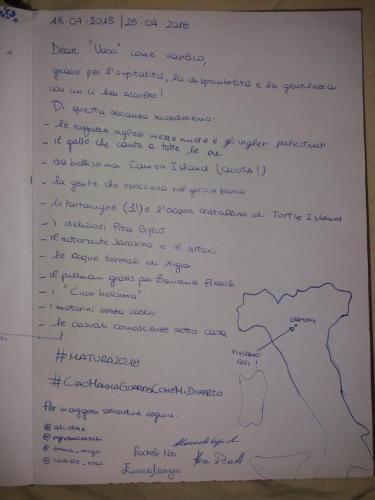 18.07.2018 | 25.07.2018
Dear "Vaso" come vasilico,
grazie per l'ospitalità, la disponibilità e la gentilezza
con cui ci hai accolto!
Di questa vacanza ricorderemo:
- le ragazze inglesi mezze nude e gli inglesi palestrati
- il gallo che canta a tutte le ore
- era bellissima Cameo Island (CHIUSA!)
- la gente che sboccava nel giro in barca
- le tartarughe (1!) e l'acqua cristallina di Turtle Island
- i deliziosi Pita Gyros
- il ristorante Sarakina e il sirtaki
- le acque termali di Xigia
- il pullman gratis per Banana Beach
- i "Ciao bellissima"
- i motorini senza casco
- le casuali conoscenze sotto casa
#MATURA2018
#CIAOMAMMAGUARDACOMEMIDIVERTO
Per maggiori avventure seguire:
CREMONA
VIVIAMO
QUI!